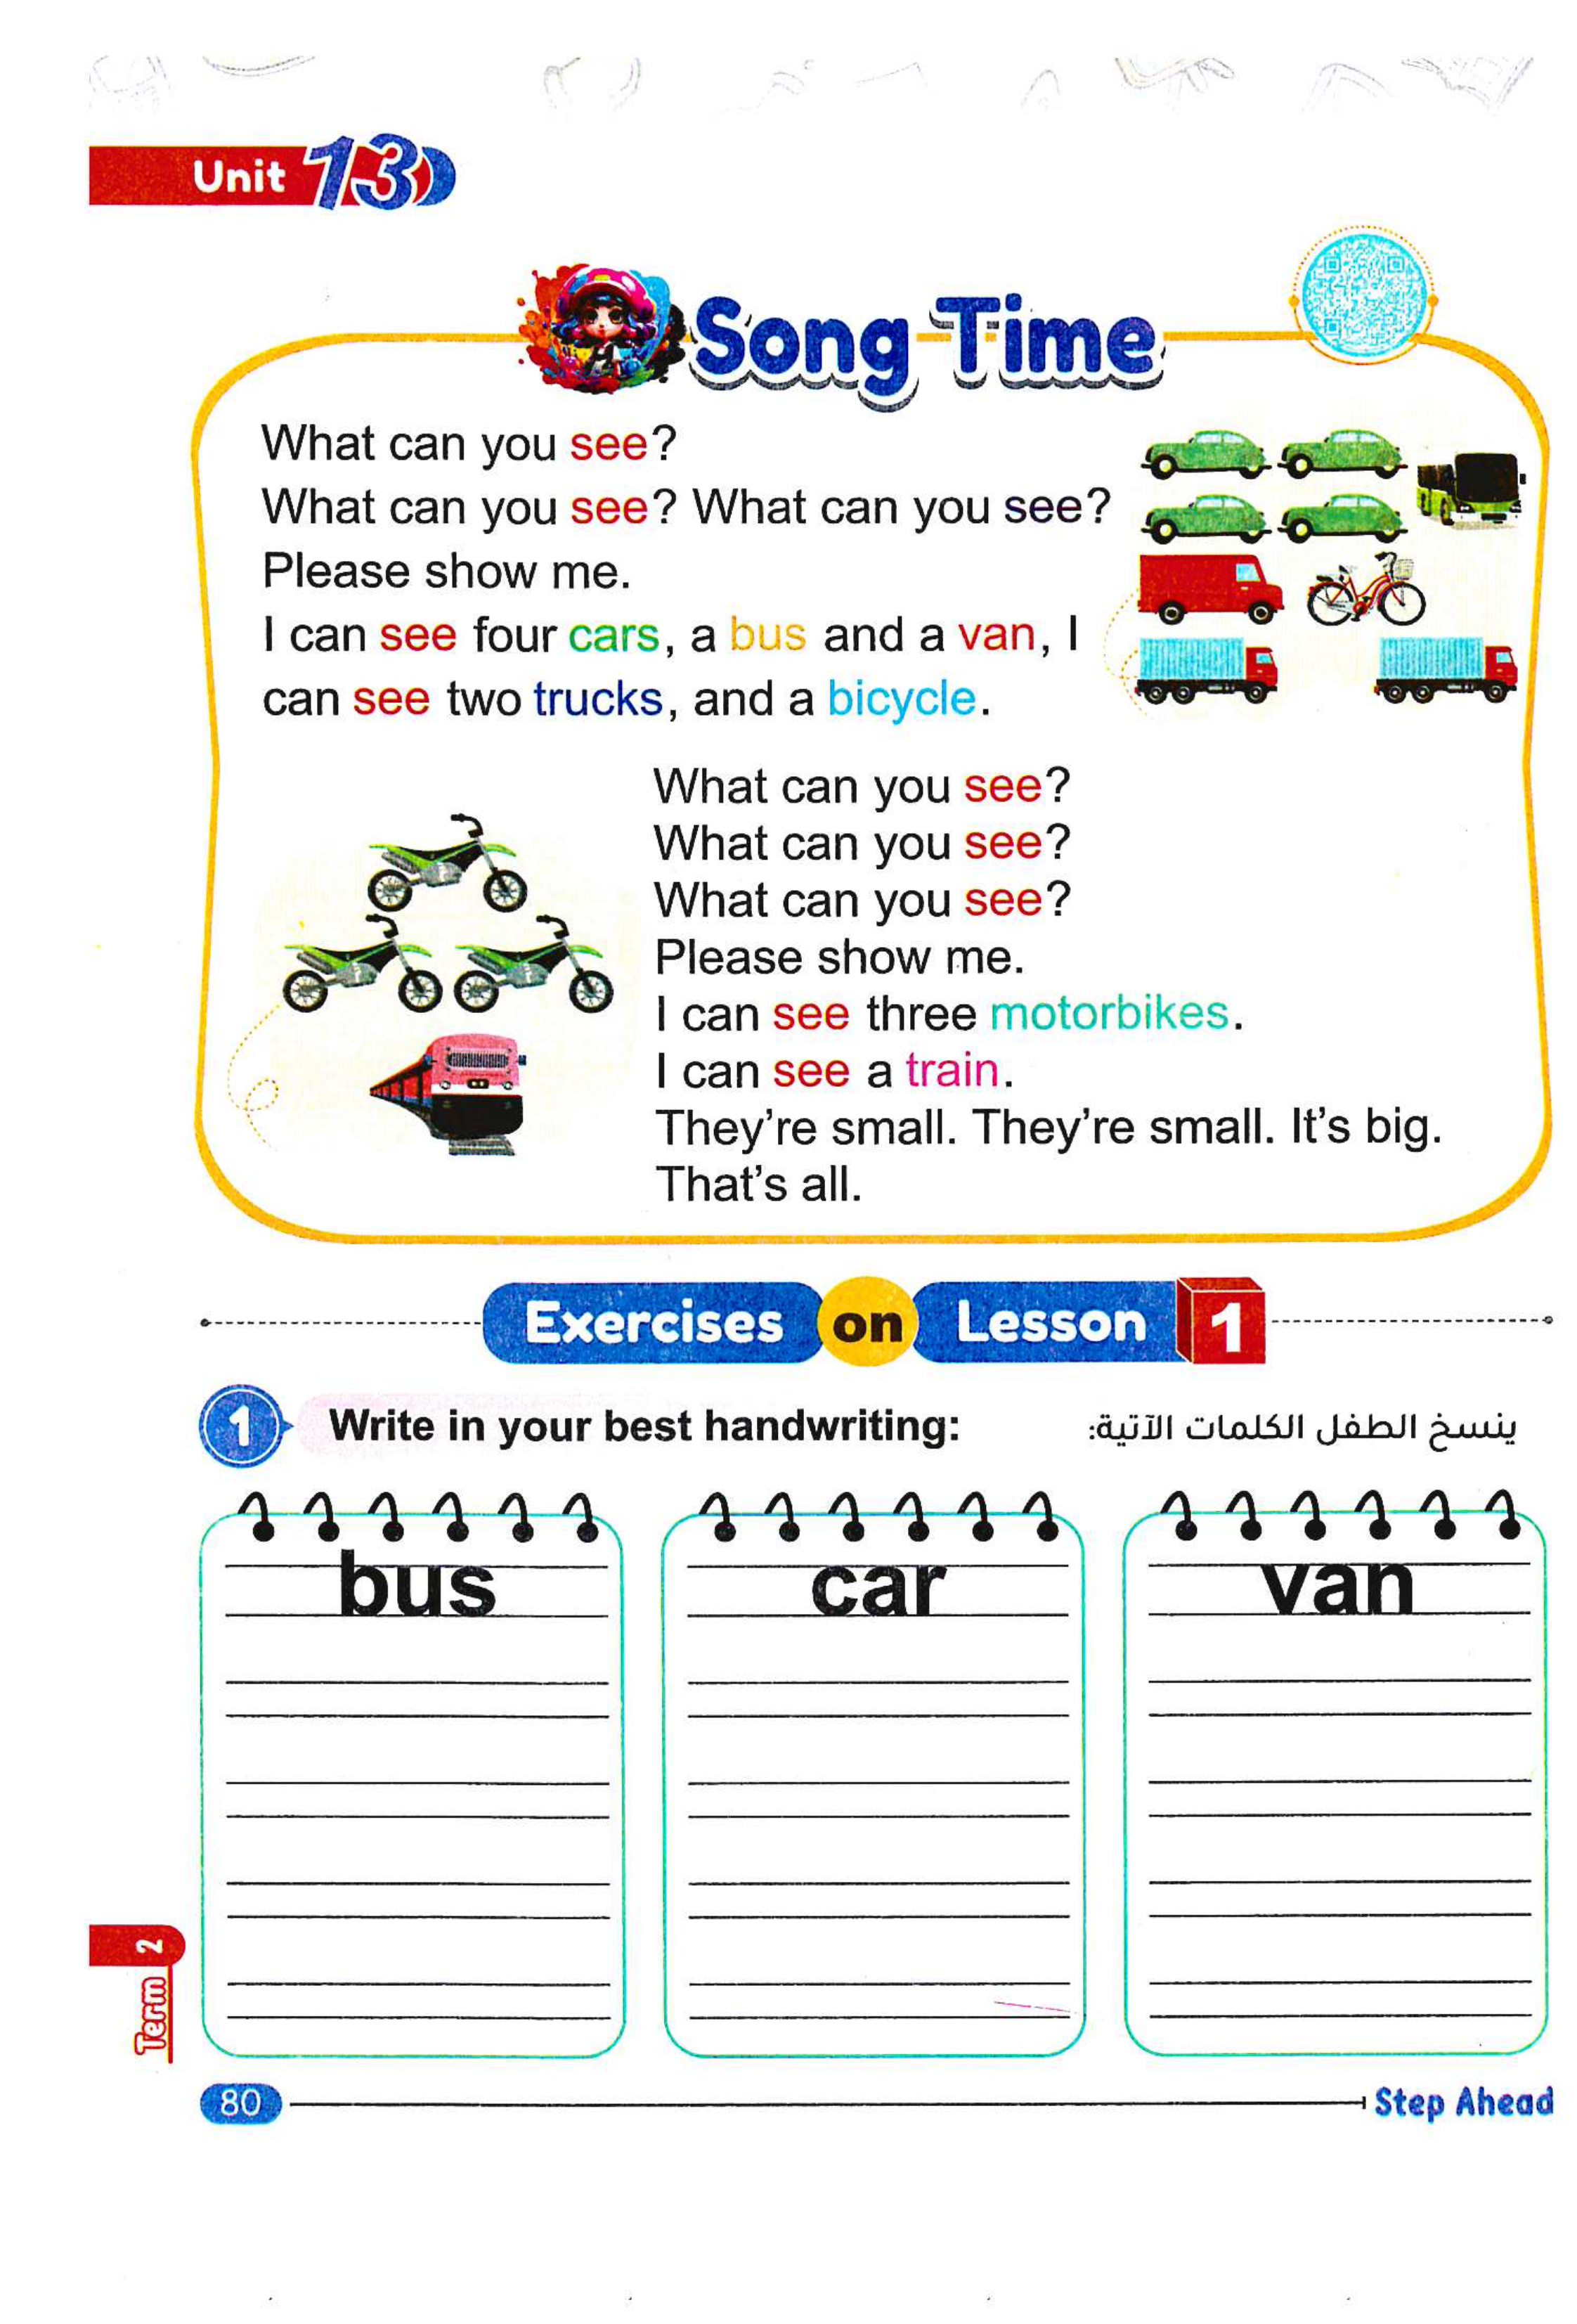 Unit 13
Song Time
What can you see?
What can you see? What can you see?
Please show me.
I can see four cars, a bus and a van, I
can see two trucks, and a bicycle.
What can you see?
What can you see?
What can you see?
Please show me.
I can see three motorbikes.
I can see a train.
They're small. They're small. It's big.
That's all.
Exercises on Lesson 1
1 Write in your best handwriting:
ينسخ الطفل الكلمات الآتية:
bus
car
van
Term 2
80
Step Ahead